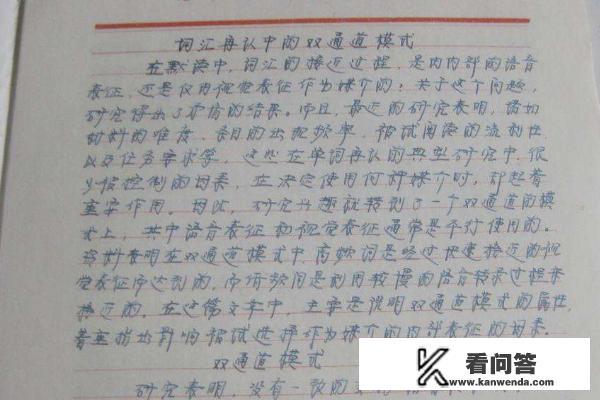 词汇再认中的双通道模式
在默读中,词汇的接近过程,是由内部的语音
表征,还是仅由视觉表征作为媒介的?关于这个问题,
研究得出了矛盾的结果。而且,最近的研究表明,诸如
材料的难度、条目的出现频率、被试阅读的流利性
以及任务要求等,这些在单词再认的典型研究中,很
少被控制的因素,在决定使用何种媒介时,却起着
重要作用。因此,研究兴趣就转到了一个双通道的模
式上,其中语音表征和视觉表征通常是平行使用的。
资料表明在双通道模式中,高频词是经过快速接近的视
觉表征而达到的,而低频词是利用较慢的语音转录过程来
接近的。在这篇文章中,主要是说明双通道模式的属性,
着重指出影响被试选择作为媒介的内部表征的因素。
双通道模式
研究表明,没有一致的
K 看问答
www.kanwenda.com